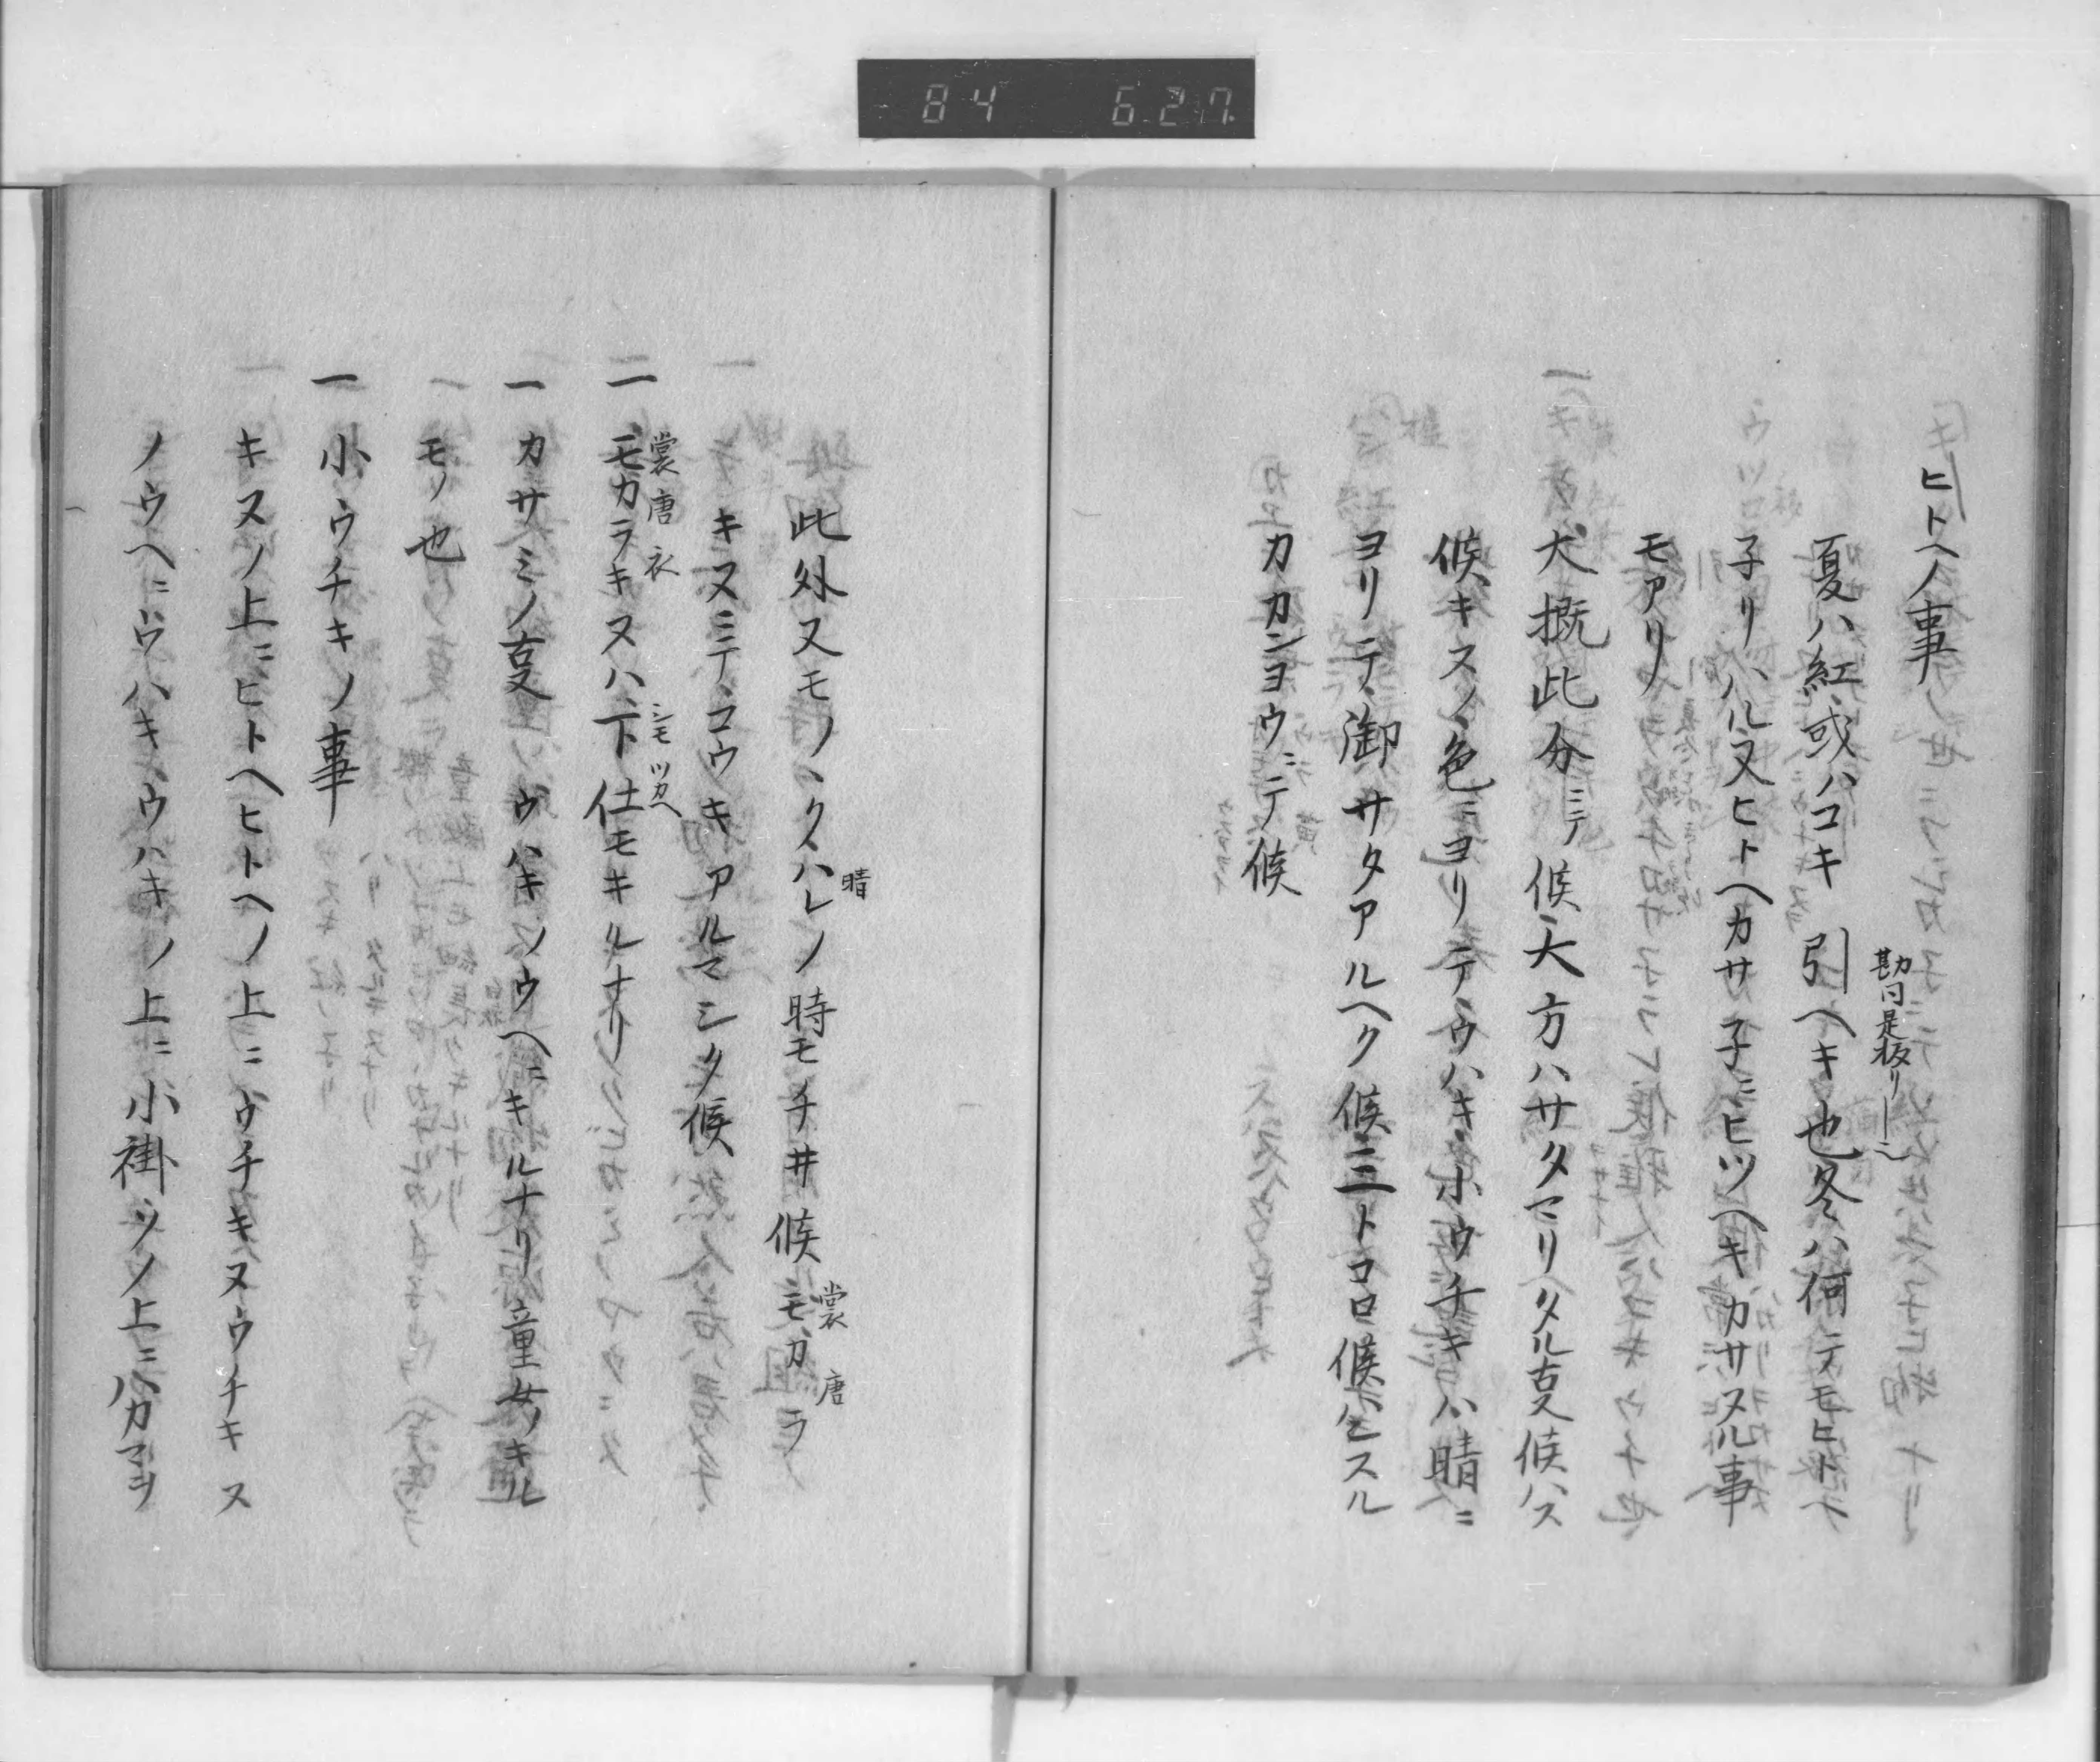 84 627
ヒトヘノ事
夏ハ紅或ハコキ引ヘキ也冬ハ何テモヒトヘ
子リハル又ヒトヘカサ子ニヒツヘキカサヌル事
モアリ
大概此分ニテ候大方ハサタマリタル叓候ハス
候キヌノ色ニヨリテウハキ小ウチキハ晴ニ
ヨリテ御サタアルヘク候三トコロ候ハンスル
カカンヨウニテ候
此外又モノクハレノ時モチ井候モカラ
晴
裳 唐
キヌニテコウキアルマシタ候
一モカラキヌハ下仕モキルナリ
裳唐衣
シモツカヘ
一カサミノ叓ウハキノウヘニキルナリ童女ノキル
モノ也
一小ウチキノ事
キヌノ上ニヒトヘヒトヘノ上ニウチキヌウチキヌ
ノウヘニウハキウハキノ上ニ小褂ツノ上ニハカマヲ